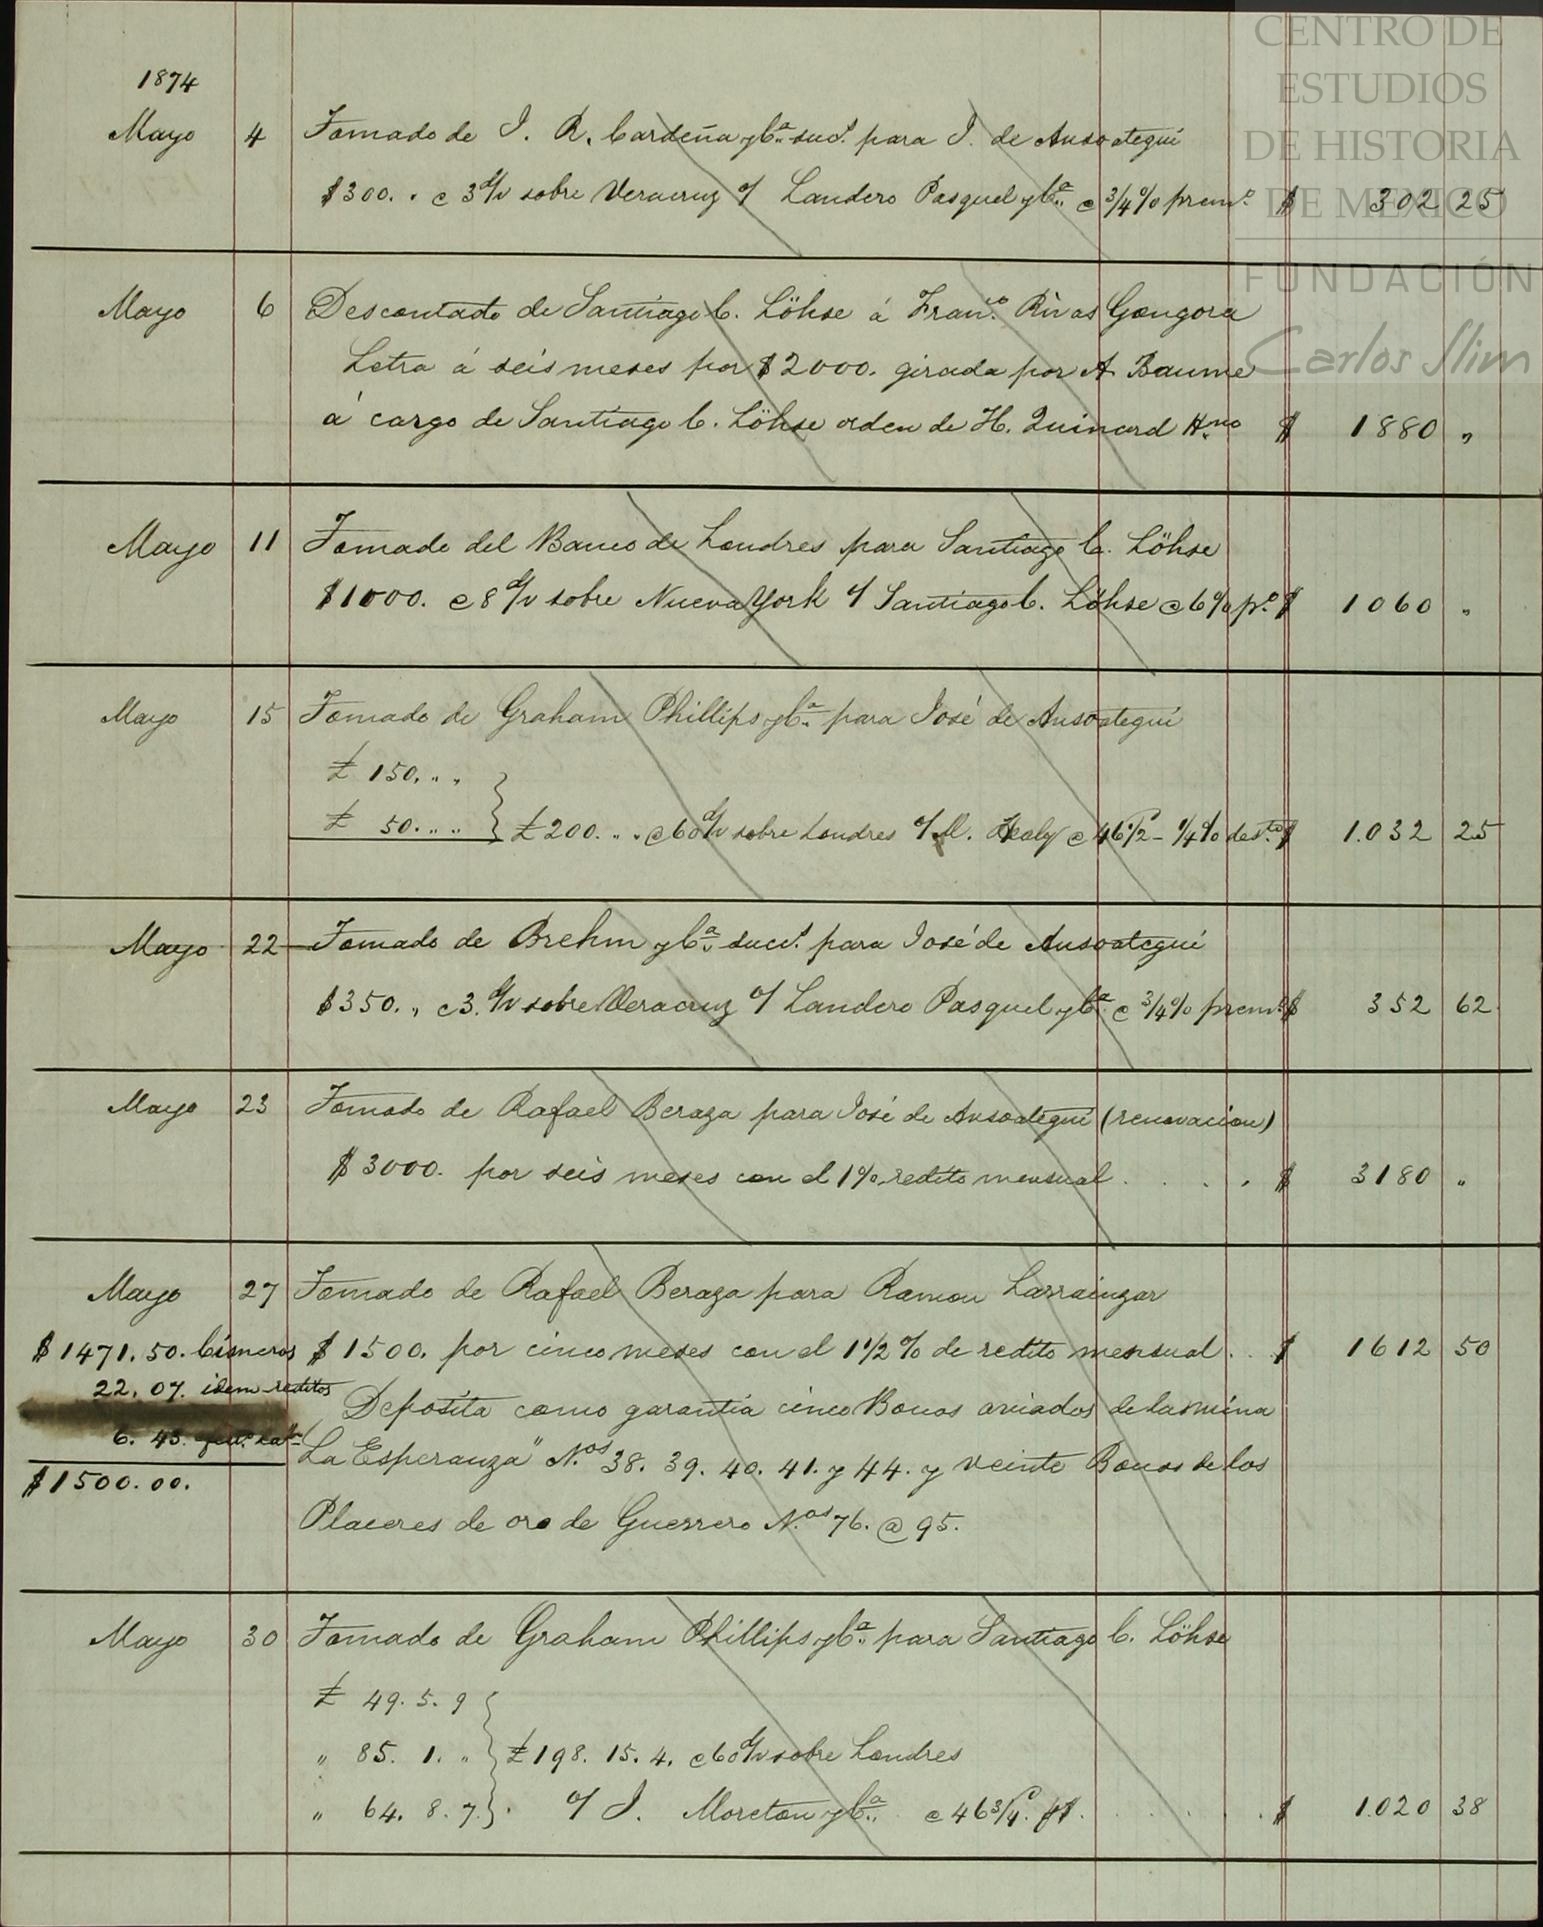 CENTRO DE
ESTUDIOS
DE HISTORIA
DE MEXICO
FUNDACIÓN
Carlos Slim
1874
Mayo 4 Tomado de J. R. Cardeña y Cª. suc.s para J. de Ansoategui
$300. " @ 3 d/v sobre Veracruz c/ Landero Pasquel y Cª. @ 3/4 % prem.o $ 302 25
Mayo 6 Descontado de Santiago C. Löhse á Fran.co Rivas Gongora
Letra á seis meses por $2000. girada por A. Baume
á cargo de Santiago C. Löhse orden de H. Quinard Hno $ 1880 "
Mayo 11 Tomado del Banco de Londres para Santiago C. Löhse
$1000. @ 8 d/v sobre Nueva York c/ Santiago C. Löhse @ 6 % p.o $ 1060 "
Mayo 15 Tomado de Graham Phillips y Cª. para José de Ansoategui
£ 150. " "
£ 50. " " } £ 200. " " @ 60 d/v sobre Londres c/ M. Healy @ 46 1/2 - 1/4 % dest.o $ 1.032 25
Mayo 22 Tomado de Brehm y Cª. suc.s para José de Ansoategui
$350. " @ 3. d/v sobre Veracruz c/ Landero Pasquel y Cª. @ 3/4 % prem.o $ 352 62
Mayo 23 Tomado de Rafael Beraza para José de Ansoategui (renovacion)
$3000. por seis meses con el 1 % redito mensual . . . . $ 3180 "
Mayo 27 Tomado de Rafael Beraza para Ramon Larrainzar
$1471. 50. Cisneros $1500. por cinco meses con el 1 1/2 % de redito mensual . . $ 1612 50
22. 07. idem reditos Deposita como garantia cinco Bonos aviados de la mina
6. 43. La Esperanza" N.os 38. 39. 40. 41. y 44. y veinte Bonos de los
$1500. 00.
Placeres de oro de Guerrero N.os 76. @ 95.
Mayo 30 Tomado de Graham Phillips y Cª. para Santiago C. Löhse
£ 49. 5. 9
" 85. 1. " } £ 198. 15. 4. @ 60 d/v sobre Londres
" 64. 8. 7. c/ J. Moreton y Cª. @ 46 3/4 . . . . $ 1.020 38